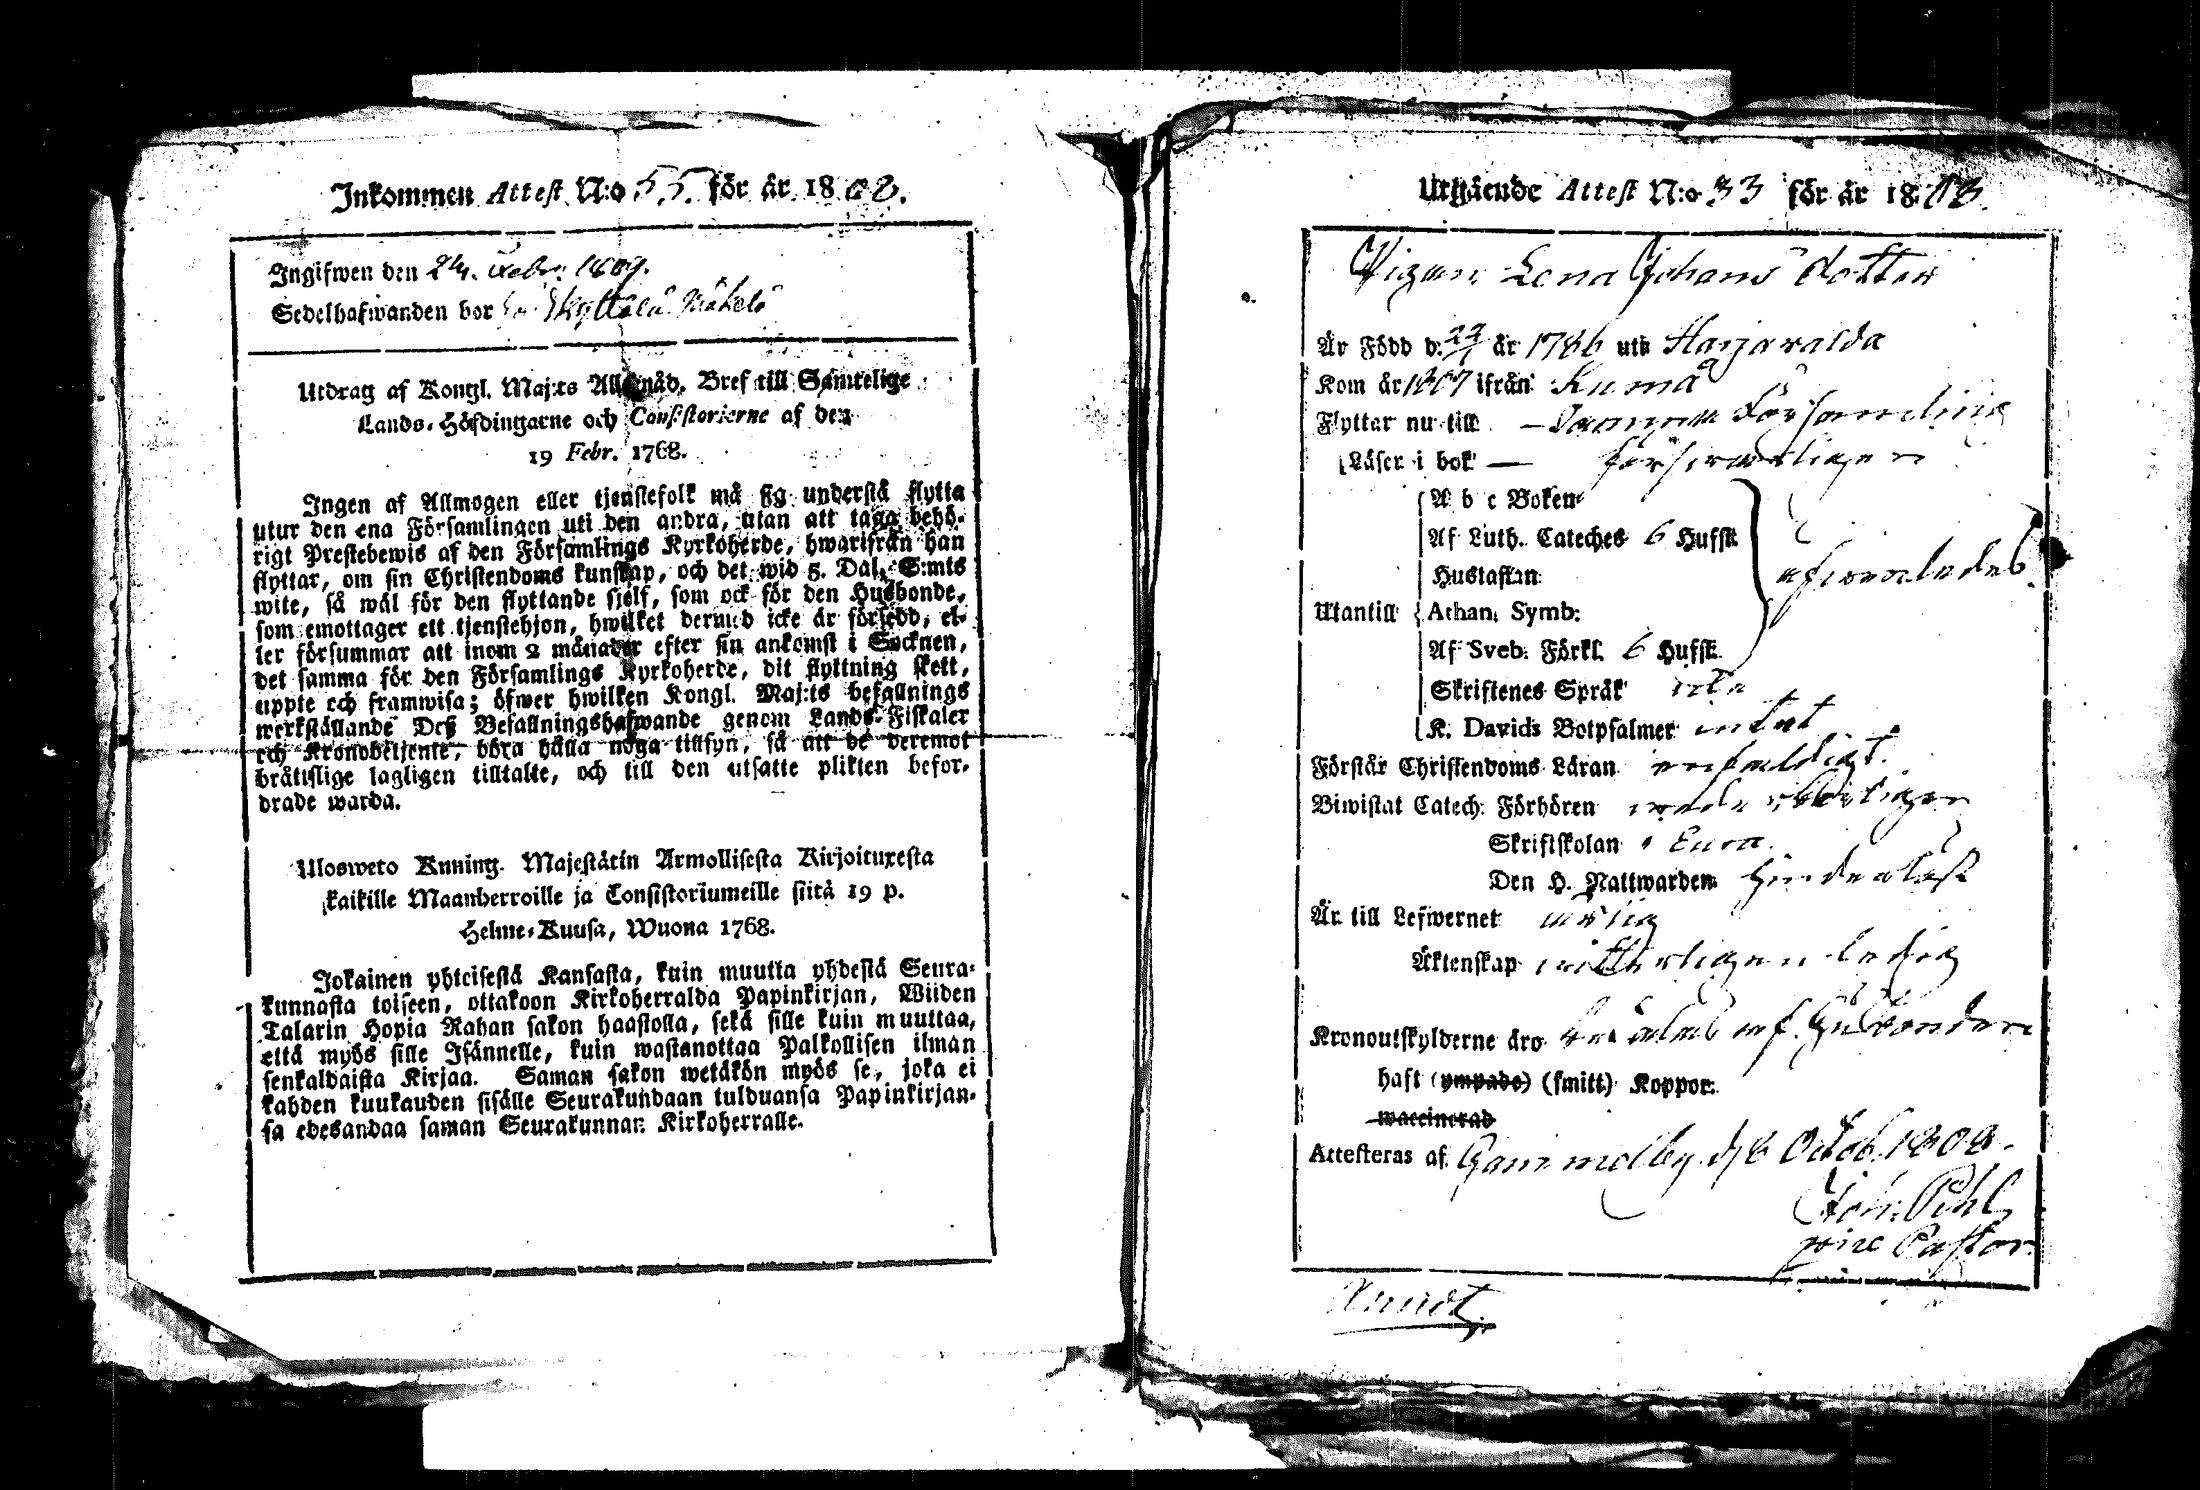 Inkommen Attest N:o 55. för år 1808.
Ingifwen den 24. 1809.
Sedelhafwanden bor
Utdrag af Kongl. Maj:ts Allernåd. Bref till Samtelige
Lands-Höfdingarne och Consistorierne af den
19 Febr. 1768.
Ingen af Allmogen eller tjenstefolk må sig understå flytta
utur den ena Församlingen uti den andra, utan att taga behö-
rigt Prestebewis af den Församlings Kyrkoherde, hwarifrån han
flyttar, om sin Christendoms kunskap, och det wid 5. Dal. S:mts
wite, så wäl för den flyttande sjelf, som ock för den Husbonde,
som emottager ett tjenstehjon, hwilket dermed icke är försedd, el-
ler försummar att inom 2 månader efter sin ankomst i Socknen,
det samma för den Församlings Kyrkoherde, dit flyttning skett,
uppte och framwisa; öfwer hwilken Kongl. Maj:ts befallnings
werkställande Deß Befallningshafwande genom Lands-Fiskaler
och Kronobetjente, böra hålla noga tillsyn, så att de deremot
bråttslige lagligen tilltalte, och till den utsatte plikten befor-
drade warda.
Ulosweto Kuning. Majestätin Armollisesta Kirjoituxesta
kaikille Maanherroille ja Consistoriumeille siitä 19 p.
Helme-Kuusa, Wuona 1768.
Jokainen yhteisestä Kansasta, kuin muutta yhdestä Seura-
kunnasta toiseen, ottakoon Kirkoherralda Papinkirjan, Wiiden
Talarin Hopia Rahan sakon haastolla, sekä sille kuin muuttaa,
että myös sille Isännelle, kuin wastanottaa Palkollisen ilman
senkaldaista Kirjaa. Saman sakon wetäkön myös se, joka ei
kahden kuukauden sisälle Seurakundaan tulduansa Papinkirjan-
sa edesandaa saman Seurakunnan Kirkoherralle.
Utgående Attest N:o 33 för år 1808.
Pigan Lena Johans dotter
Är Född d. 22/1 år 1786 uti Harjavalda
Kom år 1807 ifrån Kumå
Flyttar nu till samma Församling
Läser i bok — försvarligen
A b c Boken
Af Luth. Cateches 6 Hufst.
Hustaflan
Utantill Athan. Symb. afwenledes
Af Sveb. Förkl. 6 Hufst.
Skriftenes Språk
K. Davids Botpsalmer intet
Förstår Christendoms Läran enfaldigt.
Biwistat Catech. Förhören
Skriftskolan i Eura.
Den H. Nattwarden
Är till Lefwernet
Äktenskap ledig
Kronoutskylderne äro af Husbonden
haft (ympade) (smitt) Koppor.
waccinerad
Attesteras af Gammelby d. 8 Octob. 1808.
Joh. Pihl
vice Pastor